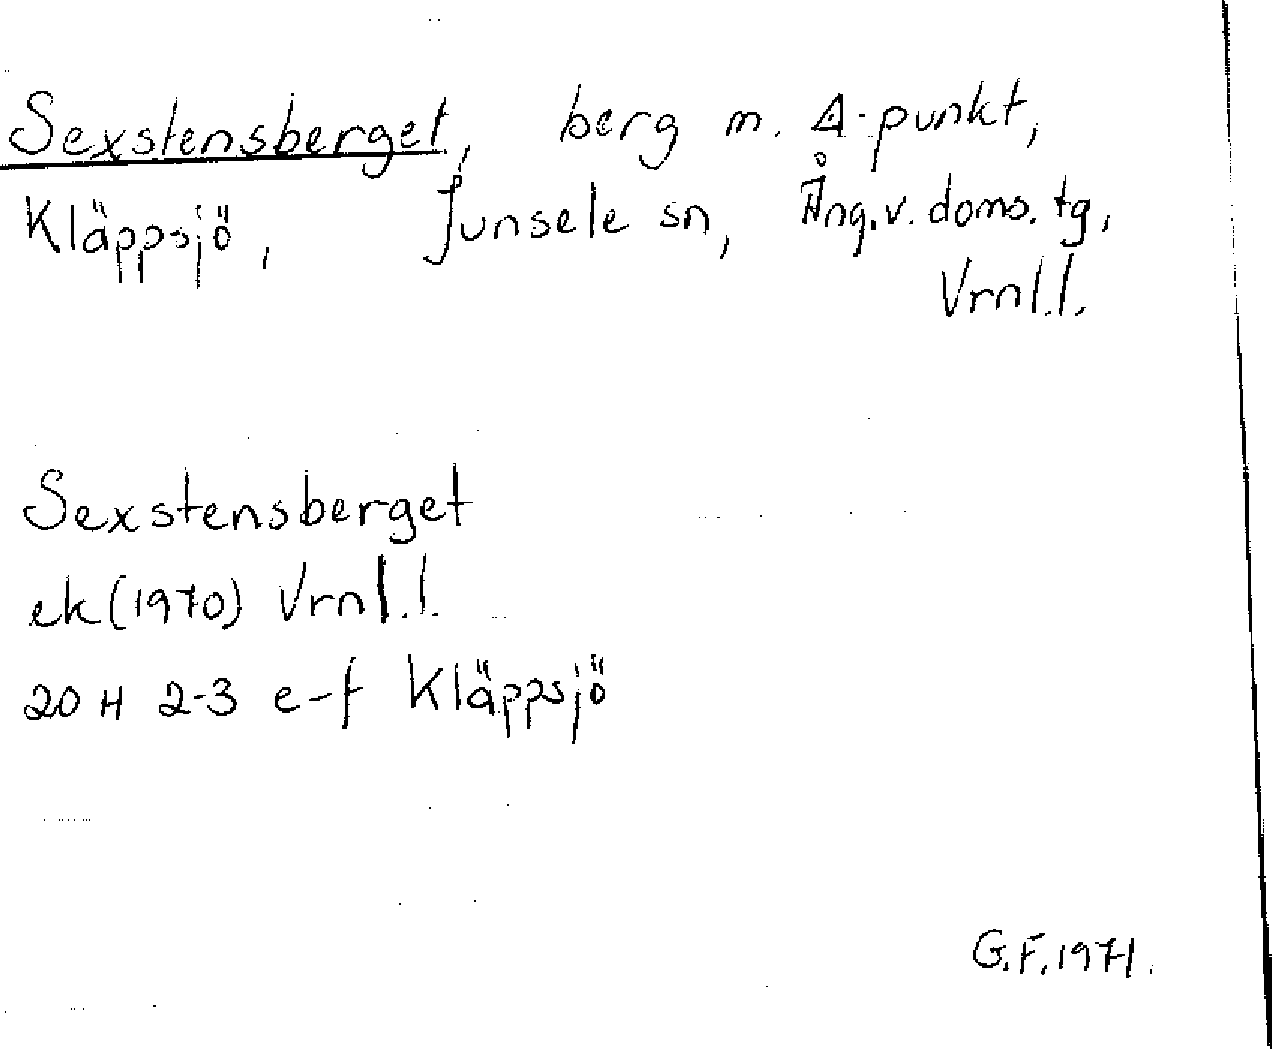 Sexstensberget, berg m. Δ-punkt,
Kläppsjö, Junsele sn, Ång.v. doms. tg,
Vrnl.l.
Sexstensberget
ek (1970) Vrnl.l.
20 H 2-3 e-f Kläppsjö
G.F. 1971.